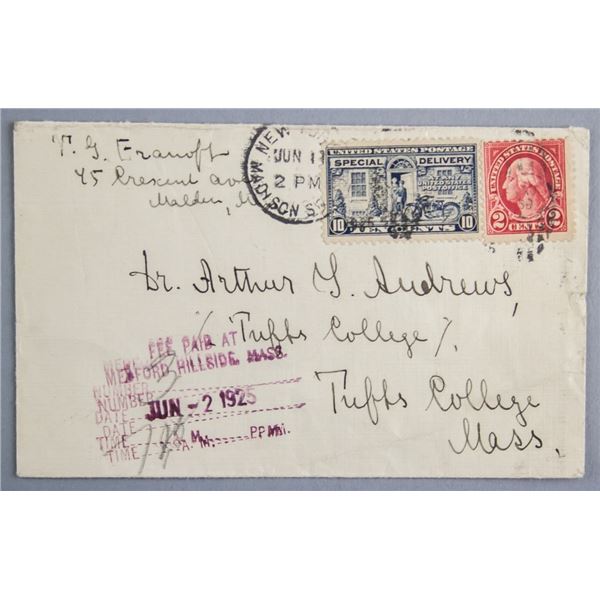 T. G. Eranoff
45 Crescent ave
Malden, M
NEW YORK
JUN 1
2 PM
MADISON SQ
UNITED STATES POSTAGE
SPECIAL DELIVERY
AT ANY
UNITED STATES
POST OFFICE
10 TEN CENTS 10
UNITED STATES POSTAGE
2 CENTS 2
Dr. Arthur I. Andrews,
Tufts College,
Tufts College
Mass.
FEE PAID AT
MEDFORD HILLSIDE, MASS.
NUMBER
NUMBER
DATE JUN - 2 1925
DATE
TIME A. M. P. M.
TIME A. M.